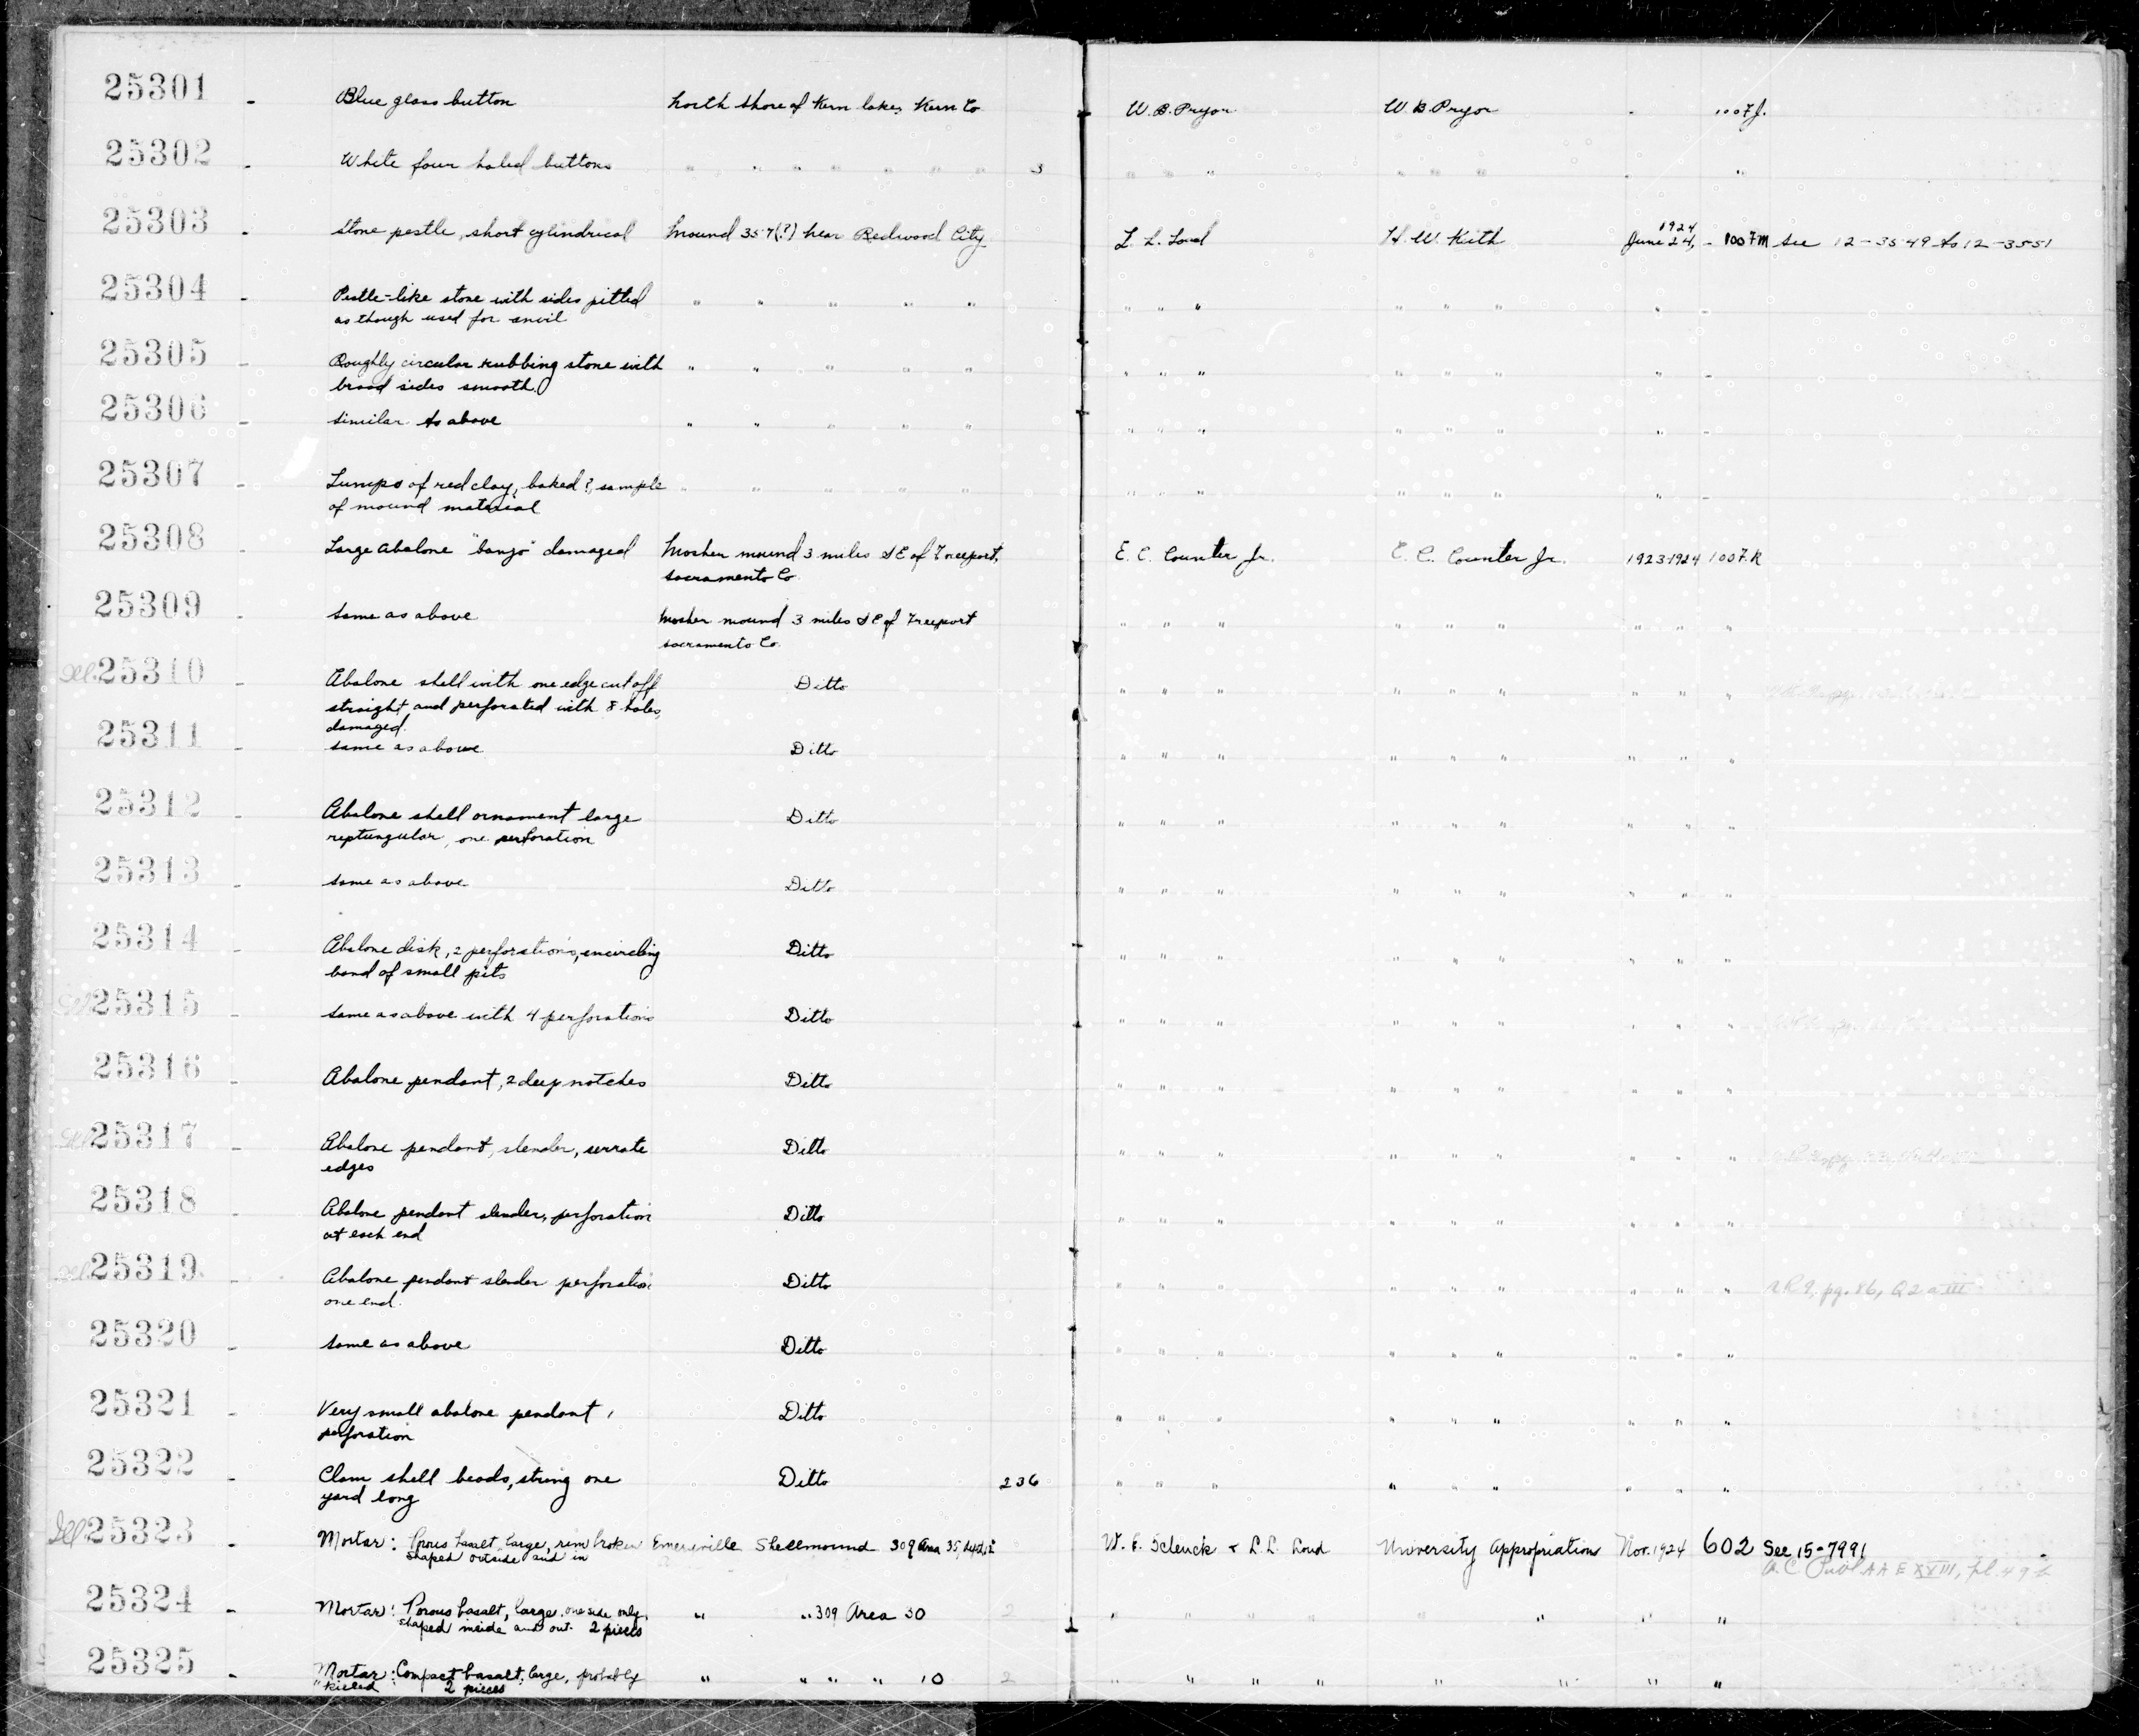 25301 - Blue glass button North shore of Kern lake, Kern Co W. B. Pryor W. B. Pryor - 1007J.
25302 - White four holed buttons " " " " " " " 3 " " " " " " - "
25303 - Stone pestle, short cylindrical Mound 357(?) near Redwood City L. L. Loud H. W. Keith 1924
June 24, - 1007M See 12-3549 to 12-3551
25304 - Pestle-like stone with sides pitted " " " " " " " " " " " " -
as though used for anvil
25305 - Roughly circular rubbing stone with " " " " " " " " " " " " -
broad sides smooth.
25306 - similar to above " " " " " " " " " " " " -
25307 - Lumps of red clay, baked?, sample " " " " " " " " " " " " -
of mound material
25308 - Large abalone "banjo" damaged Mosher mound 3 miles SE of Freeport, E. C. Counter Jr. E. C. Counter Jr. 1923-1924 1007.K
Sacramento Co.
25309 - same as above Mosher mound 3 miles SE of Freeport " " " " " " " " "
Sacramento Co.
Ill. 25310 - Abalone shell with one edge cut off Ditto " " " " " " " " "
straight and perforated with 8 holes,
damaged.
25311 - same as above Ditto " " " " " " " " "
25312 - Abalone shell ornament large Ditto " " " " " " " " "
reptungular, one perforation
25313 - same as above Ditto " " " " " " " " "
25314 - Abalone disk, 2 perforations, encircling Ditto " " " " " " " " "
band of small pits
Ill 25315 - same as above with 4 perforations Ditto " " " " " " " " "
25316 - Abalone pendant, 2 deep notches Ditto " " " " " " " " "
Ill 25317 - Abalone pendant, slender, serrate Ditto " " " " " " " " "
edges
25318 - Abalone pendant slender, perforation Ditto " " " " " " " " "
at each end
Ill 25319 - Abalone pendant slender perforation Ditto " " " " " " " " " pg. 86, Q2 a III
one end.
25320 - same as above Ditto " " " " " " " " "
25321 - Very small abalone pendant, Ditto " " " " " " " " "
perforation
25322 - Clam shell beads, string one Ditto 236 " " " " " " " " "
yard long
Ill 25323 - Mortar: Porous basalt, large, rim broken Emeryville Shellmound 309 Area 35, W. E. Schenck + L. L. Loud University Appropriation Nov. 1924 602 See 15-7991
shaped outside and in U.C. Publ AAE XVIII, pl. 49b
25324 - Mortar: Porous basalt, large, one side only, " " 309 Area 30 2 " " " " " " " "
shaped inside and out. 2 pieces
25325 - Mortar: Compact basalt, large, probably " " " " 10 2 " " " " " " " "
"killed 2 pieces